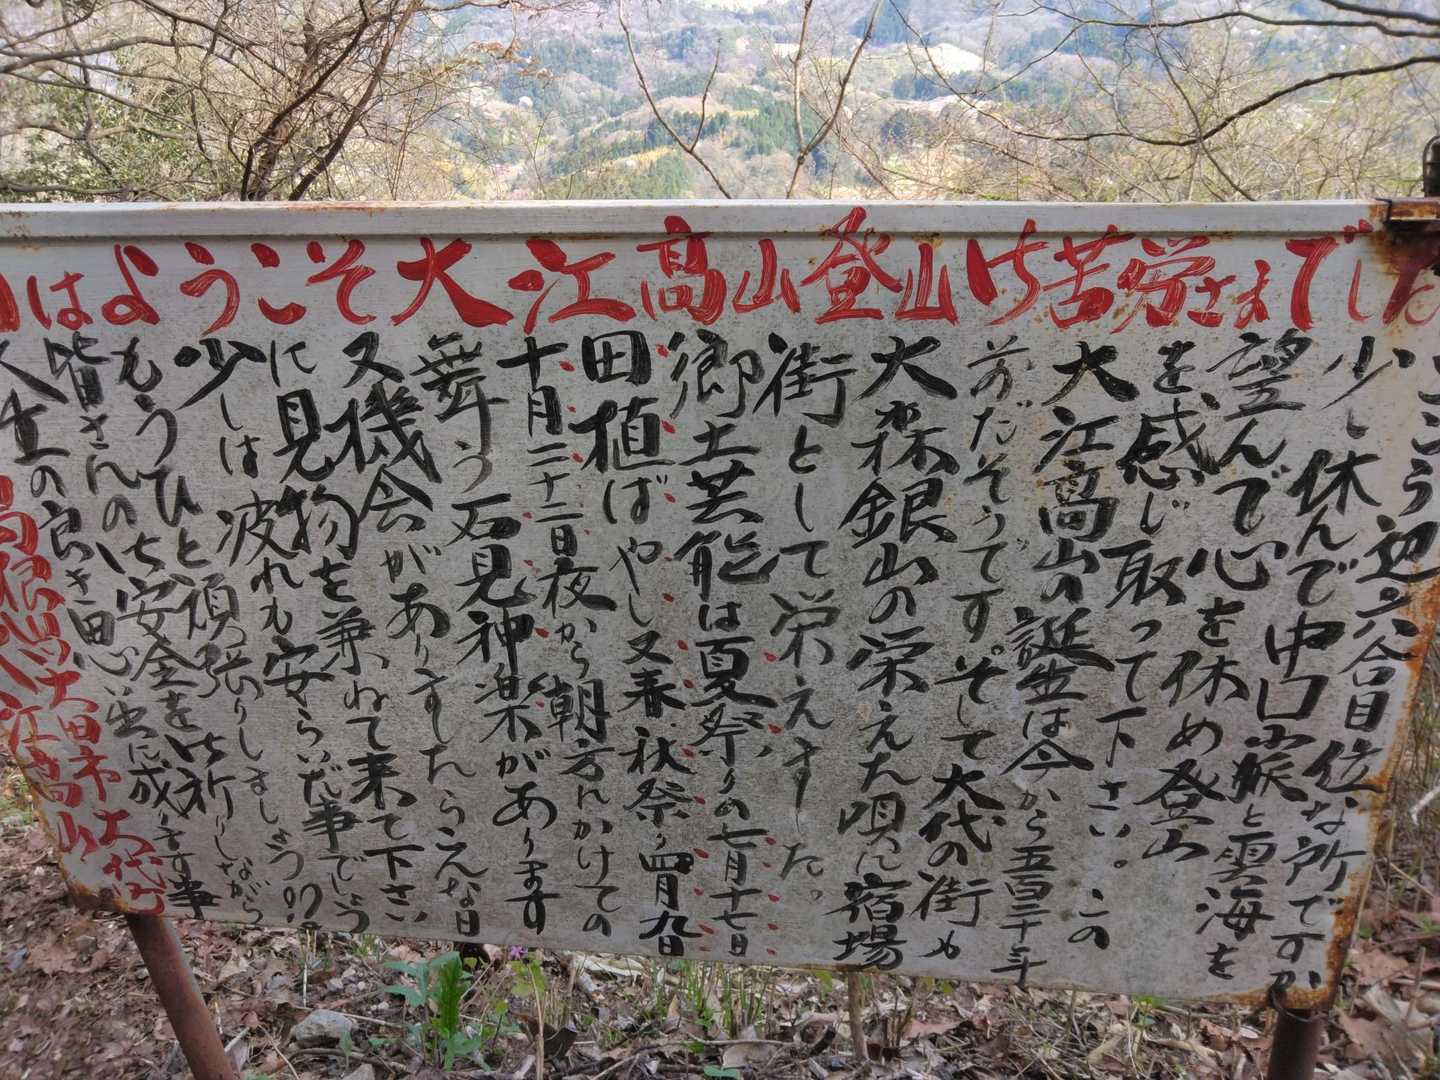 はようこそ大江高山登山御苦労さまでした
ここら辺六合目位な所ですか
少し休んで中国山脈と雲海を
望んで心を休め登山
を感じ取って下さい。この
大江高山の誕生は今から五百三十年
前だそうです。そして大代の街も
大森銀山の栄えた唄に宿場
街として栄えました。
郷土芸能は夏祭りの七月十七日
田植ばやし又春、秋祭り四月九日
十月二十二日夜から朝方にかけての
舞う石見神楽があります
又機会がありましたらこんな日
に見物を兼ねて来て下さい
少しは疲れも安らいだ事でしょう
もうひと頑張りしましょう!!
皆さんの御安全を御祈りしながら
人生の良き思い出に成ります事
大田市大代町
江高山